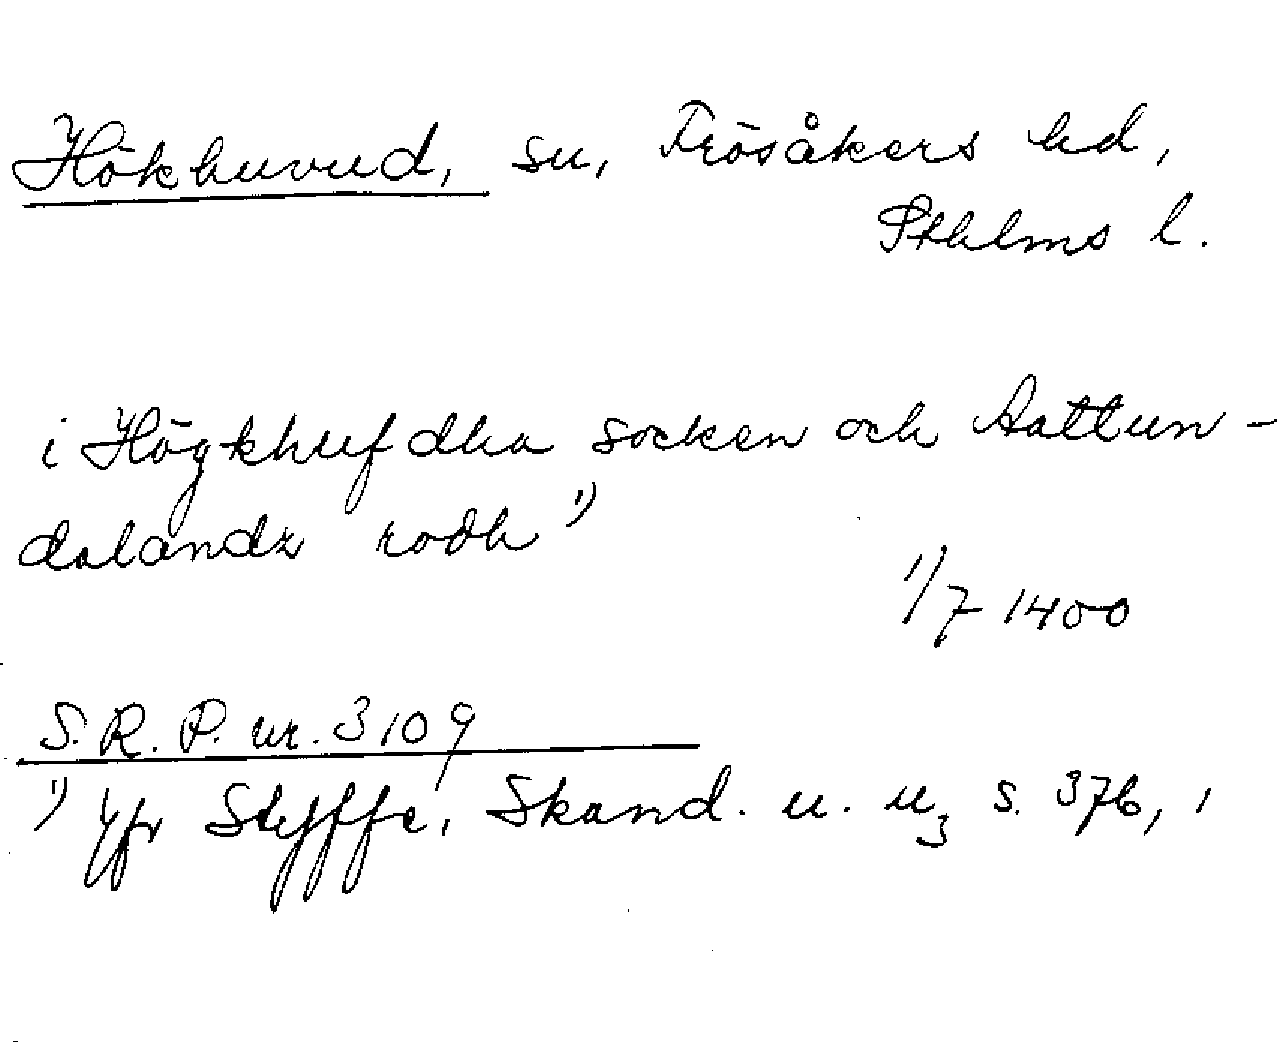 Hökhuvud, sn, Frösåkers hd,
Sthlms l.
i Högkhufdha socken och Aattun-
dalandz rodh 1)
1/7 1400
S.R.P. nr. 3109
1) Jfr Styffe, Skand. u. u3 s. 376,